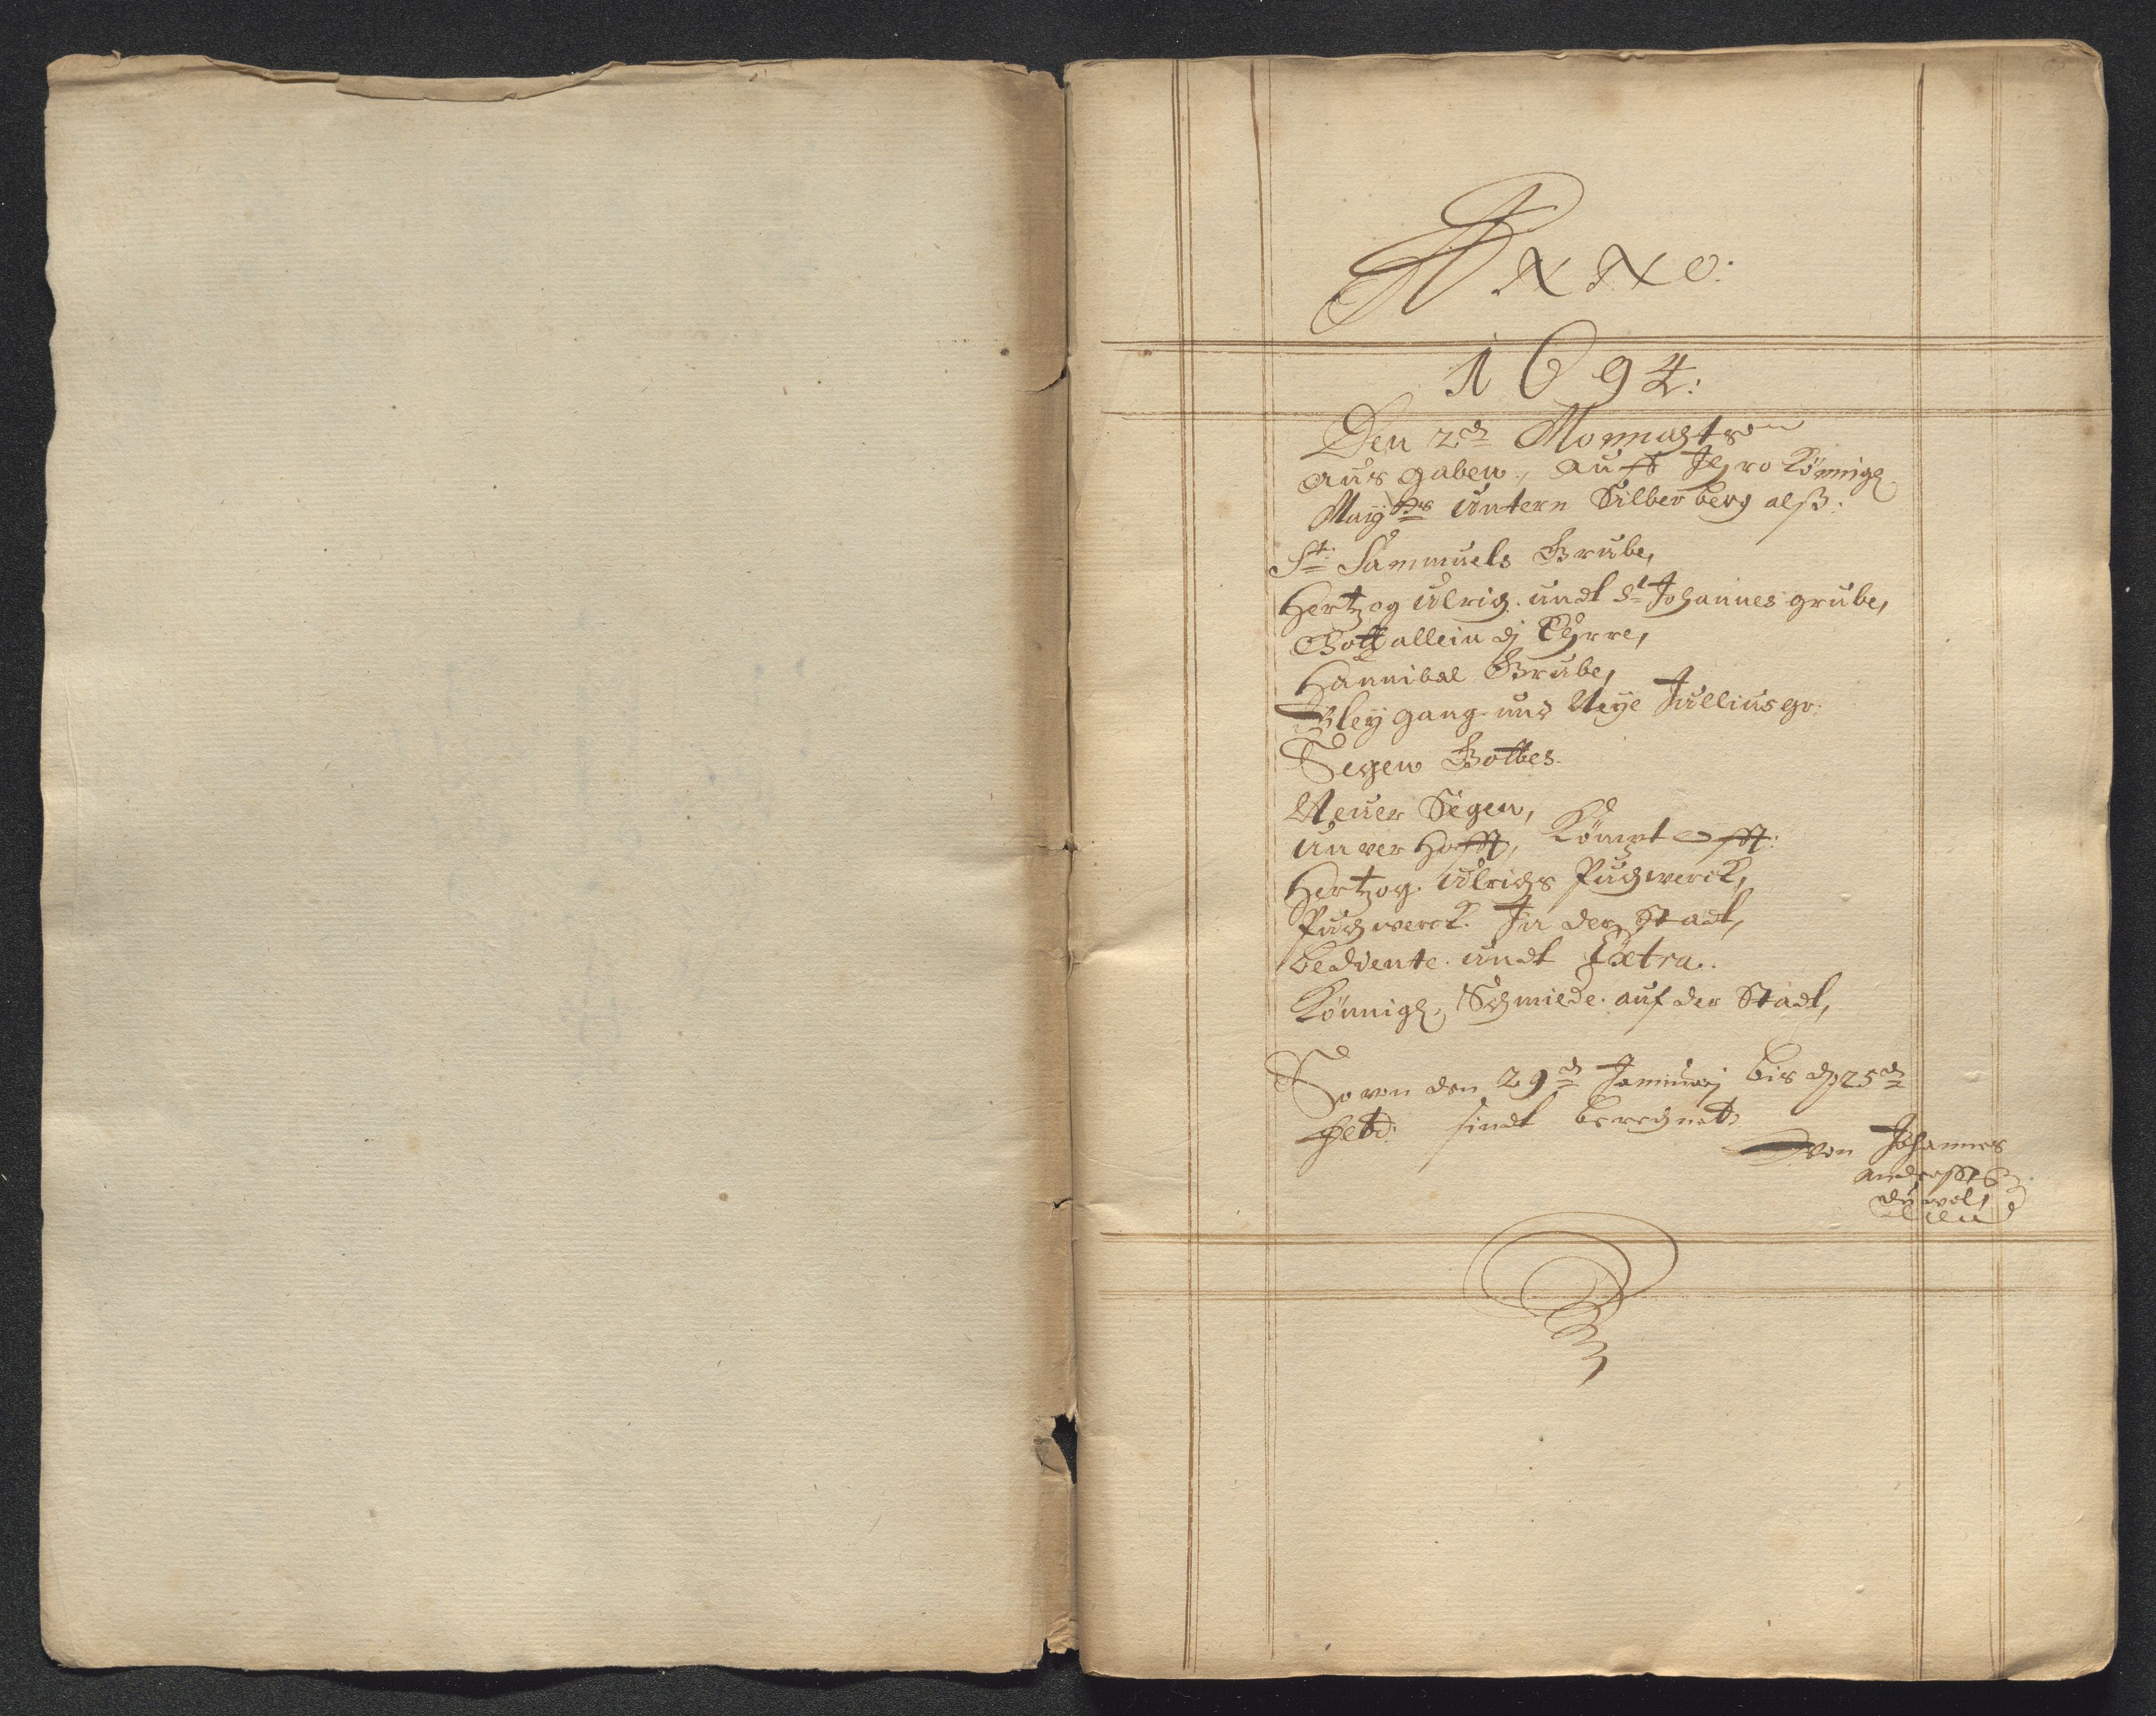 Anno:
1694:
Den 2ⁿ Monnahts
aus gaben, auff Ihro Könnigl
May untern Silber berg alß:
St: Sammuels Grube,
Hertzog Ulrich. undt St Johannes grube,
Gott allein dj Ehrre,
Hannibal Grube,
Bleygang. und Neye Julliusgr:
Segen Gottes.
Neuer Segen,
Unver Hofft, Kömpt offt:
Hertzog. Ulrichs Puchwerck,
Puchwerck. In der Stadt,
bediente. undt Extra.
Könnigl, Schmiede. auf der Stadt,
So von den 29 Jannuarj bis d 25
feb: sindt berechnet
Von Johannes